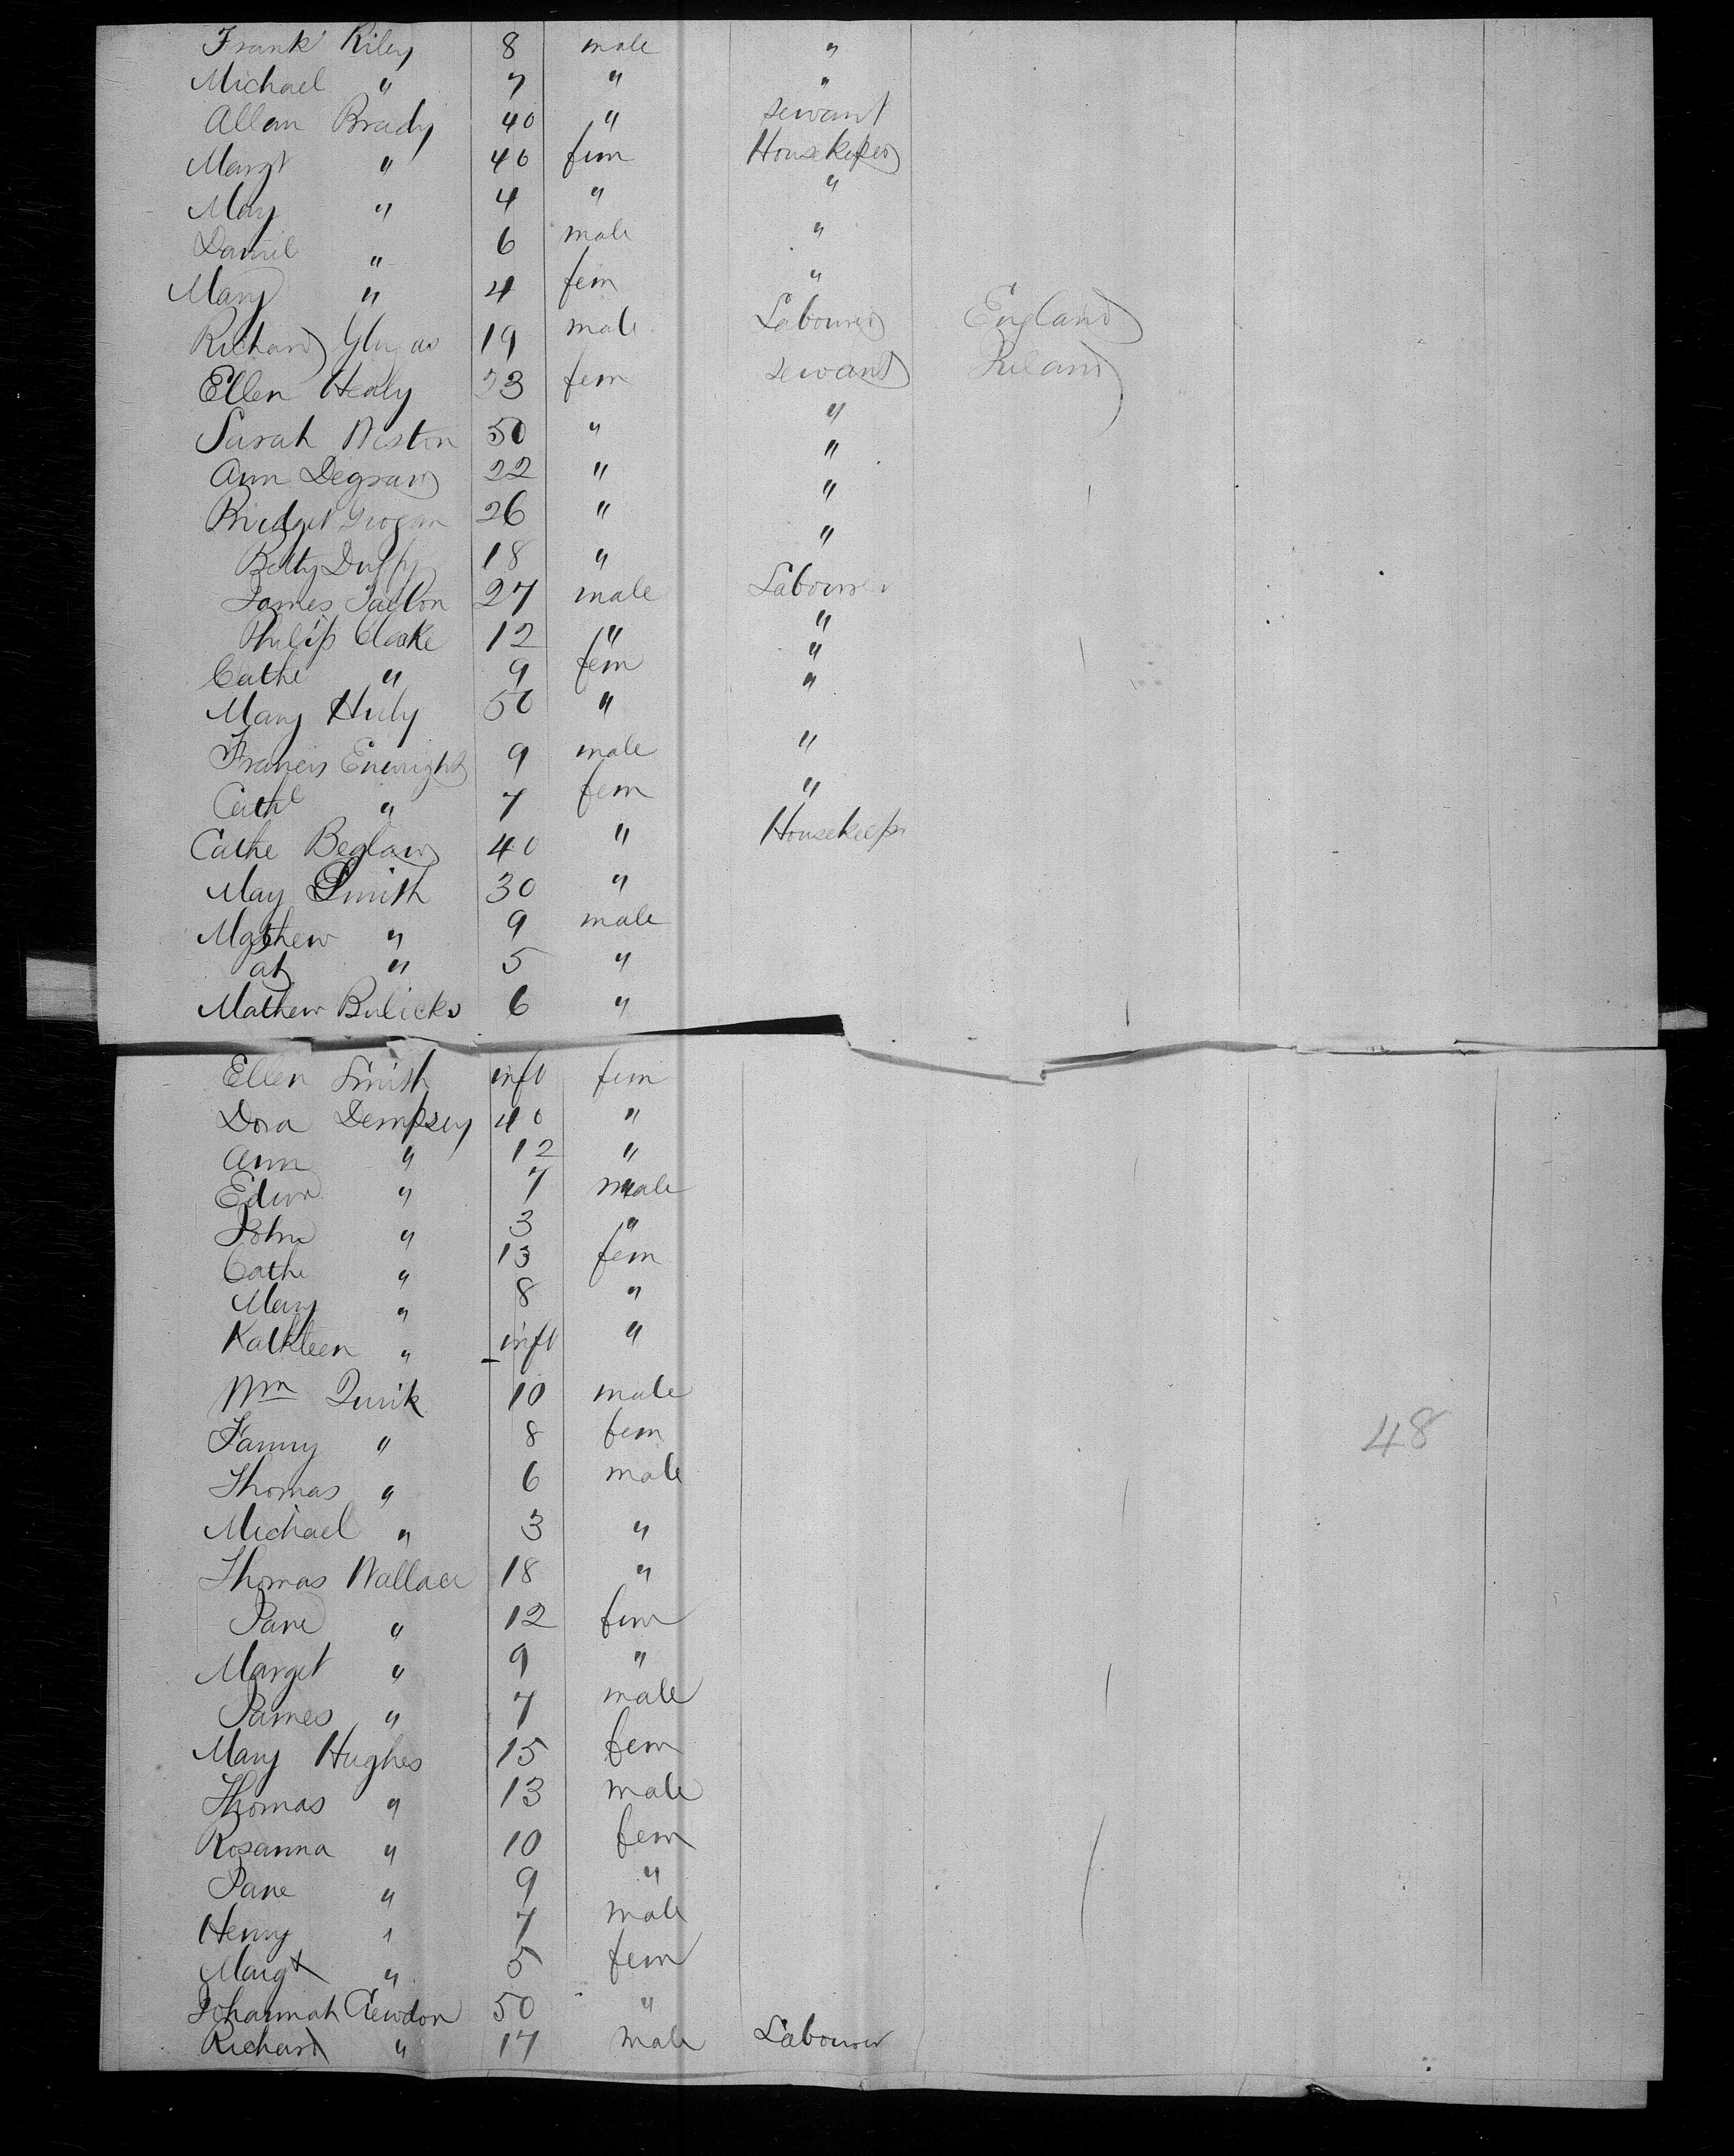 Frank Riley 8 male "
Michael " 7 " "
Allan Brady 40 " servant
Margt " 40 fem Housekeeper
May " 4 " "
Daniel " 6 male "
Mary " 4 fem "
Richard 19 male Labourer England
Ellen Healy 23 fem servant Ireland
Sarah Weston 50 " "
Ann 22 " "
Bridget Grogan 26 " "
Betty Duffy 18 " "
James 27 male Labourer
Philip Cloake 12 " "
Cathe " 9 fem "
Mary 50 " "
Francis Enwright 9 male "
Cathe " 7 fem "
Cathe 40 " Housekeepr
May Smith 30 "
Mathew " 9 male
Pat " 5 "
Mathew 6 "
Ellen Smith inft fem
Dora Dempsey 40 "
Ann " 12 "
Edwd " 7 male
John " 3 "
Cathe " 13 fem
Mary " 8 "
Kathleen " inft "
Wm Quirk 10 male
Fanny " 8 fem
48
Thomas " 6 male
Michael " 3 "
Thomas Wallace 18 "
Jane " 12 fem
Marget " 9 "
James " 7 male
Mary Hughes 15 fem
Thomas " 13 male
Rosanna " 10 fem
Jane " 9 "
Henry " 7 male
Margt " 5 fem
Johannah 50 "
Richard " 17 male Labourer